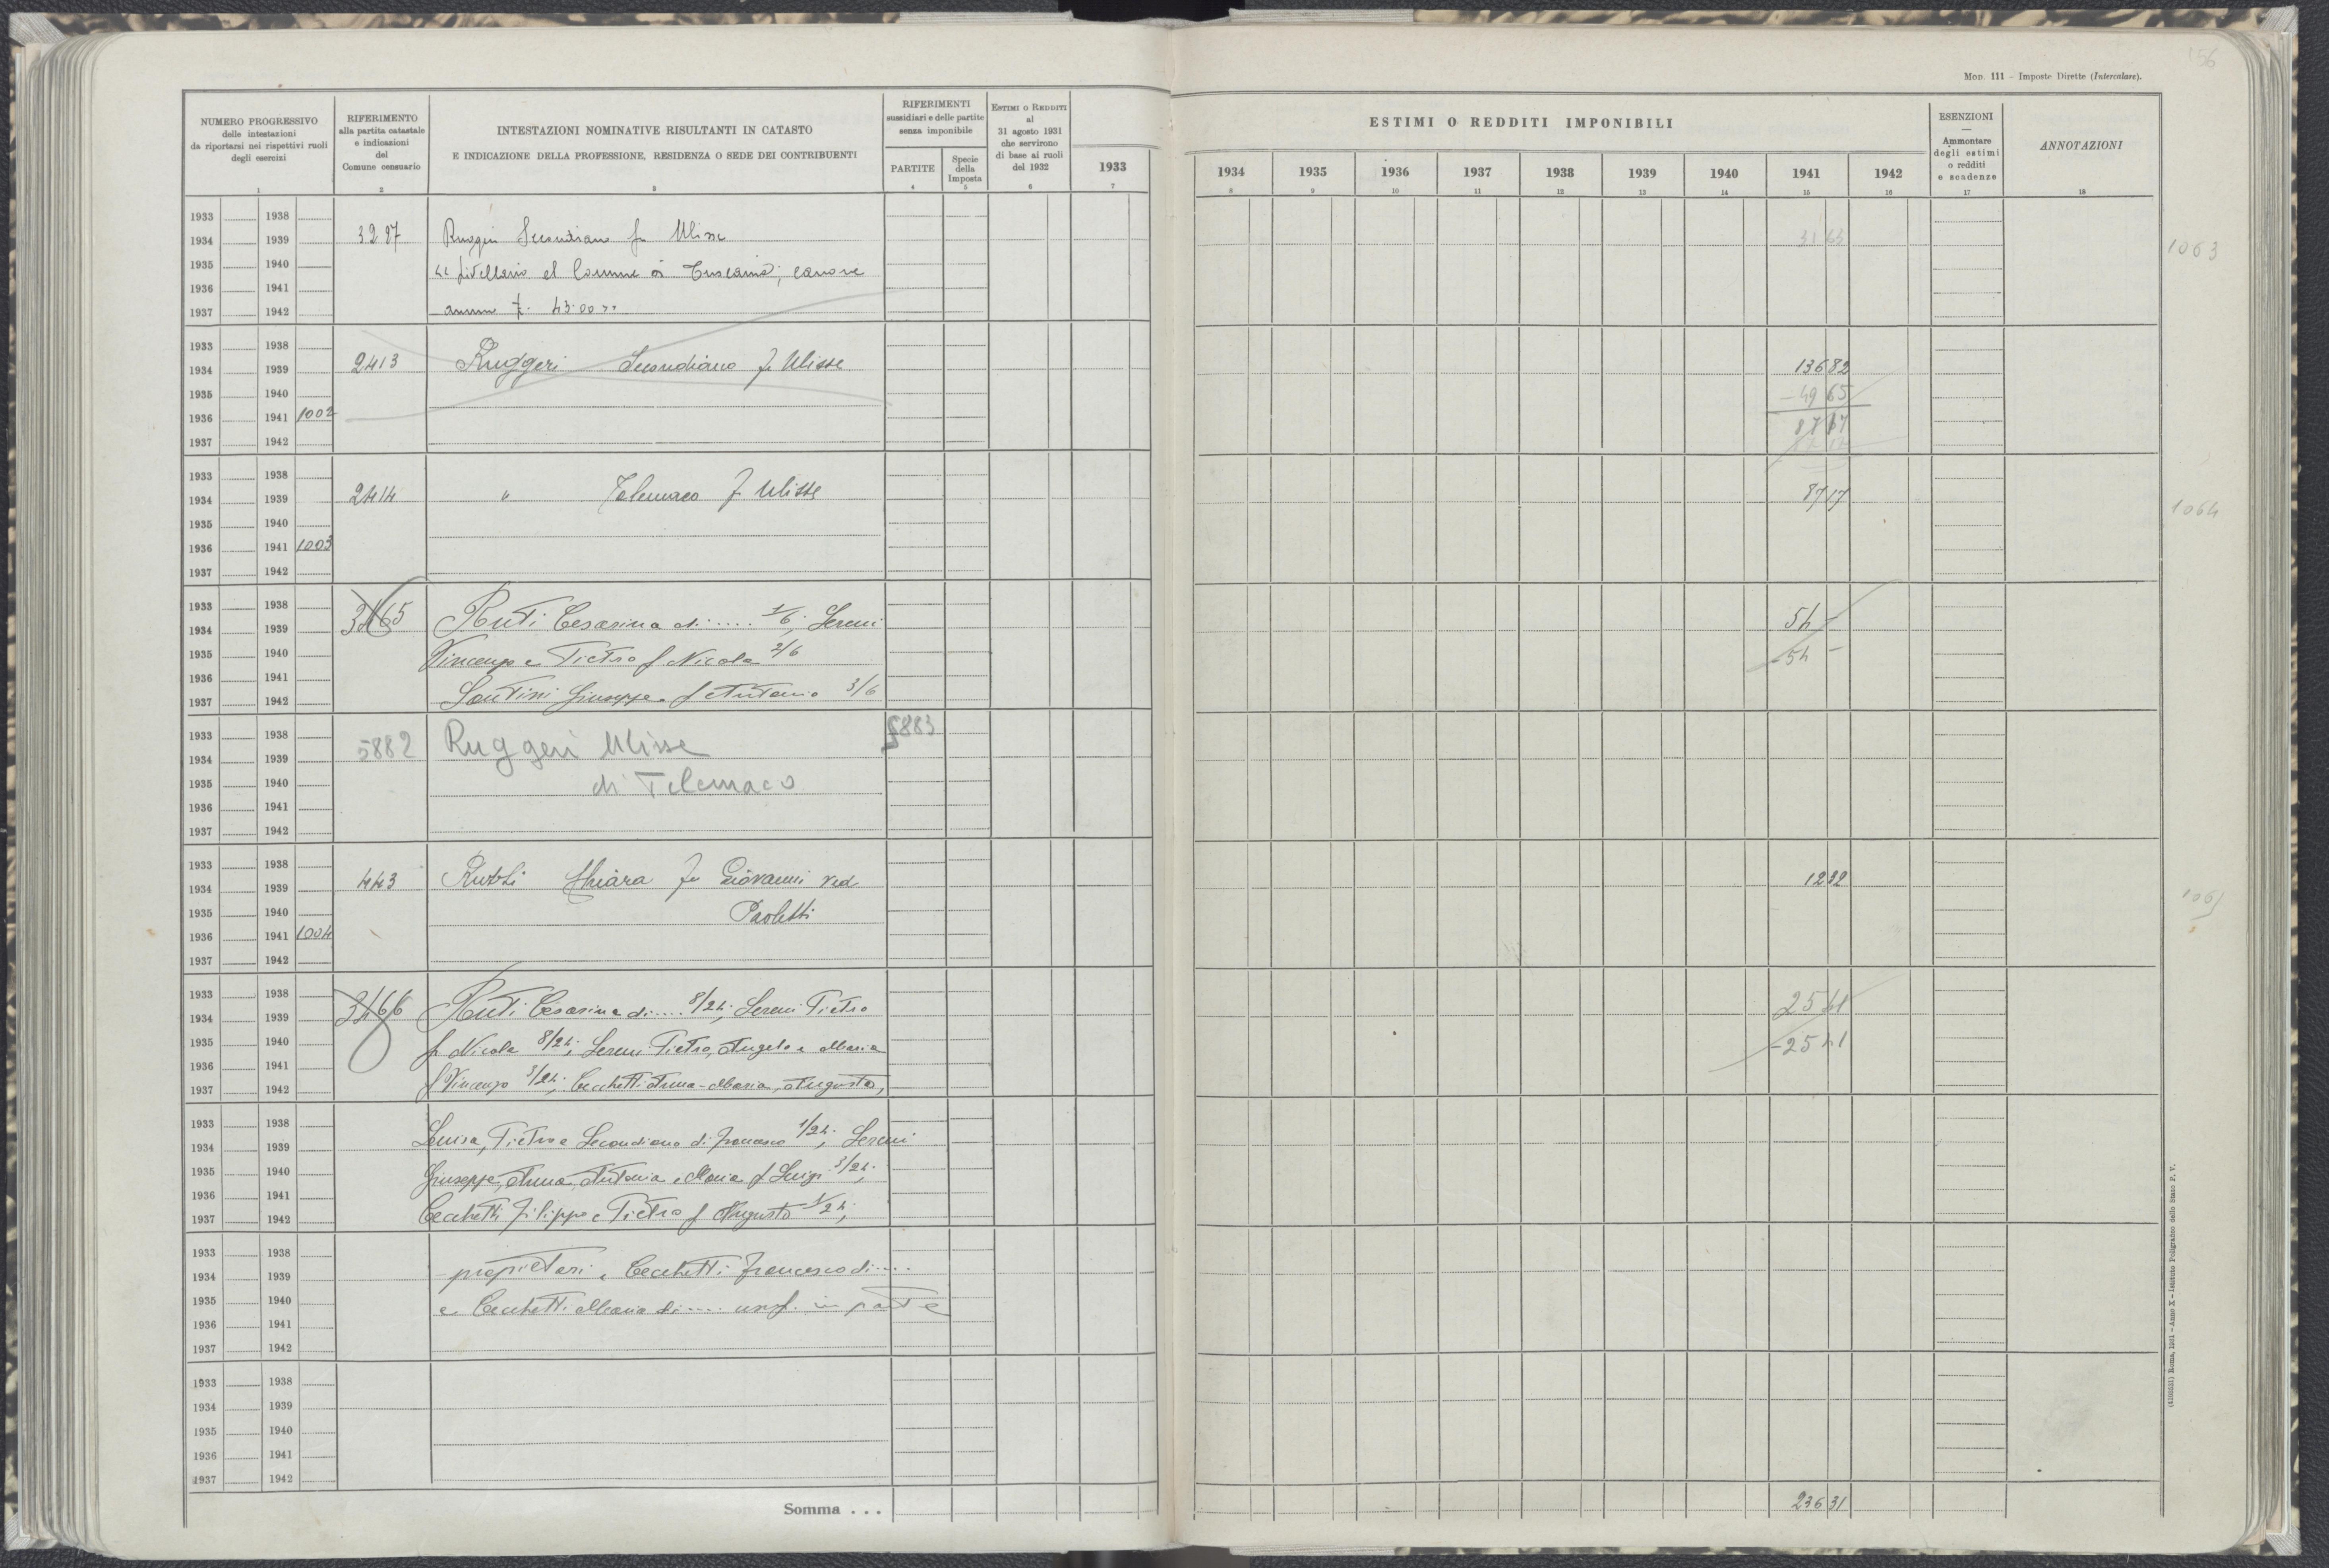 156
MOD. 111 - Imposte Dirette (Intercalare).
NUMERO PROGRESSIVO delle intestazioni da riportarsi nei rispettivi ruoli degli esercizi
RIFERIMENTO alla partita catastale e indicazioni del Comune censuario
INTESTAZIONI NOMINATIVE RISULTANTI IN CATASTO
E INDICAZIONE DELLA PROFESSIONE, RESIDENZA O SEDE DEI CONTRIBUENTI
RIFERIMENTI sussidiari e delle partite senza imponibile
PARTITE
Specie della Imposta
ESTIMI O REDDITI al 31 agosto 1931 che servirono di base ai ruoli del 1932
ESTIMI O REDDITI IMPONIBILI
1933 1934 1935 1936 1937 1938 1939 1940 1941 1942
ESENZIONI — Ammontare degli estimi o redditi e scadenze
ANNOTAZIONI
1 2 3 4 5 6 7 8 9 10 11 12 13 14 15 16 17 18
1933 1938
1934 1939 3287 Ruggeri Secondiano fu Ulisse 31 63 1063
1935 1940 "livellario al Comune di Tuscania; canone
1936 1941
1937 1942 annuo £. 43.00"
1933 1938
1934 1939 2413 Ruggeri Secondiano fu Ulisse 136 82
1935 1940 - 49 65
1936 1941 1002 87 17
1937 1942
1933 1938
1934 1939 2414 " Telemaco fu Ulisse 87 17 1064
1935 1940
1936 1941 1003
1937 1942
1933 1938
1934 1939 3465 Ruti Cesarina di .... 1/6; Sereni 54 -
1935 1940 Vincenzo e Pietro f Nicola 2/6 - 54 -
1936 1941
1937 1942 Santini Giuseppe f Antonio 3/6
1933 1938 5883
1934 1939 5882 Ruggeri Ulisse
1935 1940 di Telemaco
1936 1941
1937 1942
1933 1938
1934 1939 443 Chiara fu Giovanni ved. 12 32
1935 1940 Paoletti
1936 1941 1004
1937 1942
1933 1938
1934 1939 3466 Ruti Cesarina di .... 8/24; Sereni Pietro 25 41
1935 1940 f Nicola 8/24; Sereni Pietro, Angelo e Maria - 25 41
1936 1941
1937 1942 f Vincenzo 3/24; Cecchetti Anna-Maria, Augusto,
1933 1938
1934 1939 Luisa, Pietro e Secondiano di Francesco 1/24; Sereni
1935 1940 Giuseppe, Anna, Antonia e Maria f Luigi 3/24;
1936 1941
1937 1942 Cecchetti Filippo e Pietro f Augusto 1/24;
1933 1938
1934 1939 proprietari e Cecchetti Francesco di ....
1935 1940 e Cecchetti Maria di .... usuf. in parte
1936 1941
1937 1942
1933 1938
1934 1939
1935 1940
1936 1941
1937 1942
Somma . . . 236 31
(4103521) Roma, 1931 - Anno X - Istituto Poligrafico dello Stato P. V.